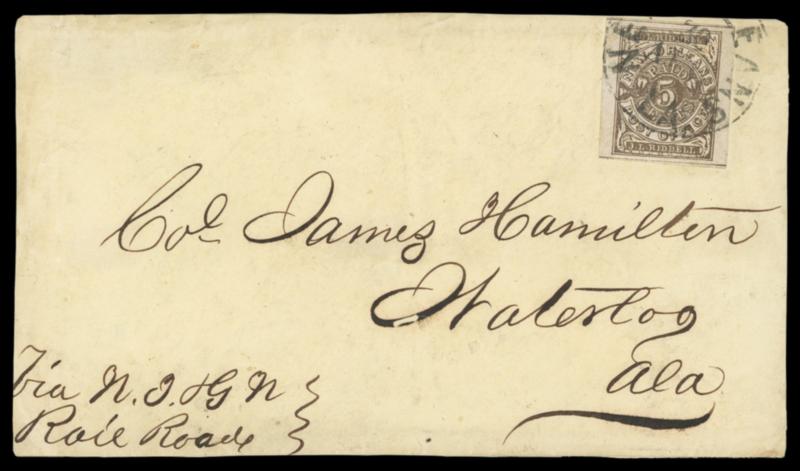 J.L. RIDDELL
NEW ORLEANS
PAID
5
CENTS
POST OFFICE
J.L. RIDDELL
Col. James Hamilton
Waterloo
Ala
Via N. J. & G N
Rail Road